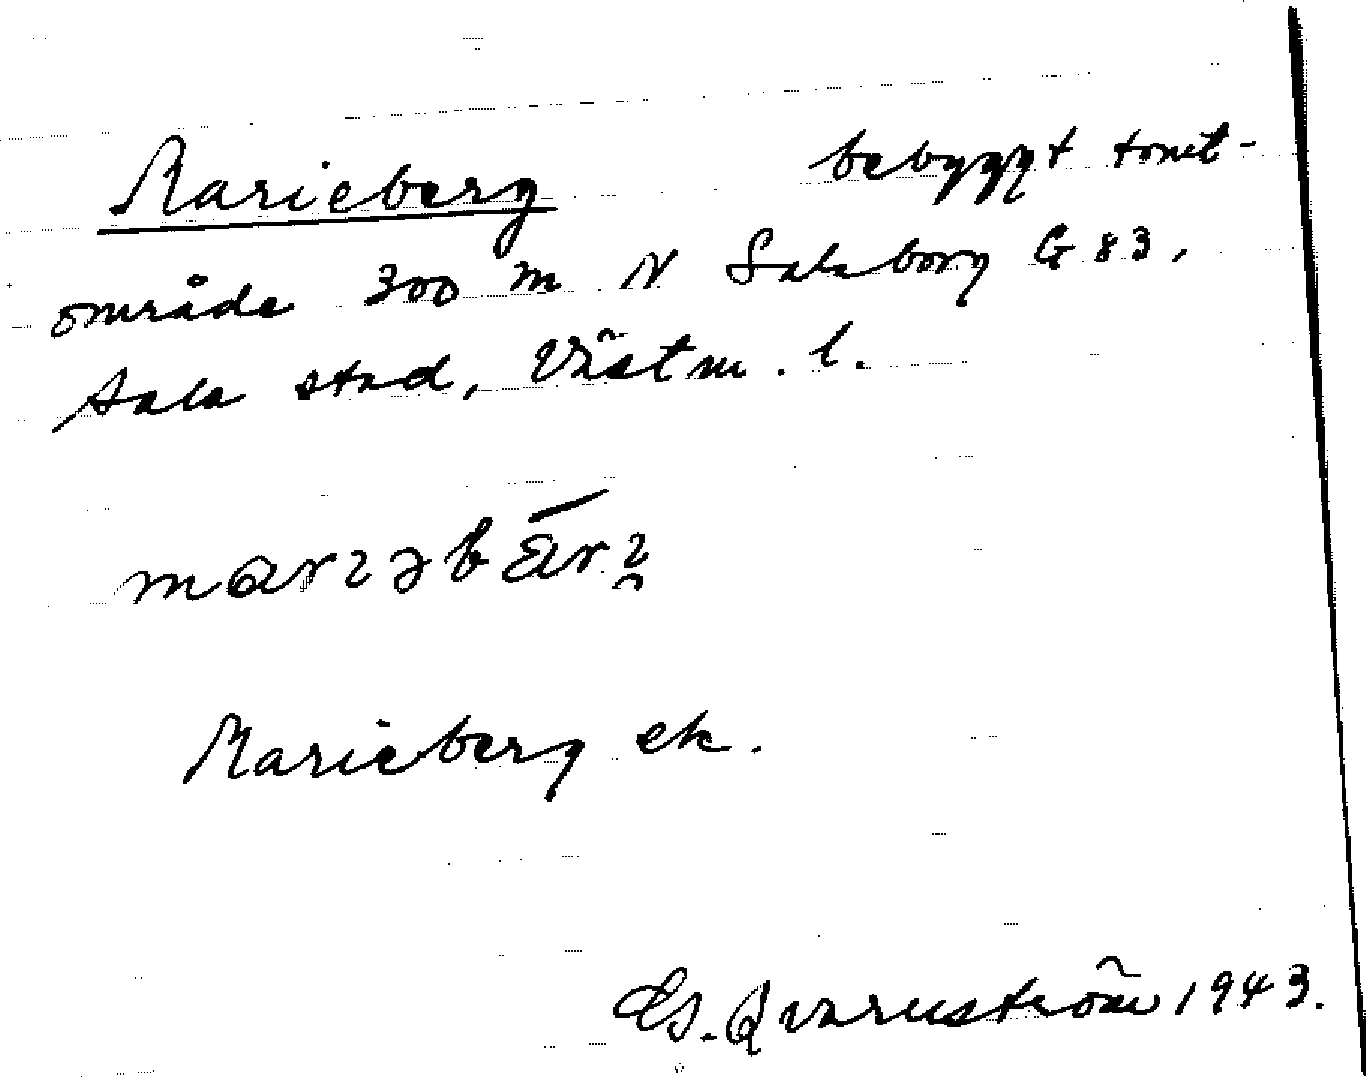 Marieberg bebyggt tomt-
område 300 m N Salaborg G 83,
Sala stad, Västm. l.
Marieberg ek.
Es. Qvarnström 1943.